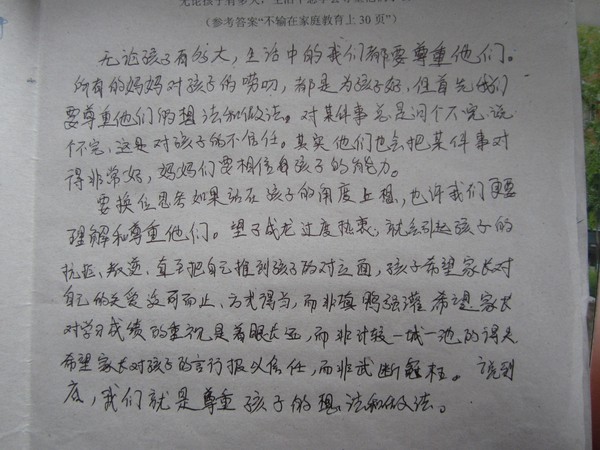 （参考答案“不输在家庭教育上30页”）
无论孩子有多大，生活中的我们都要尊重他们。
所有的妈妈对孩子的唠叨，都是为孩子好，但首先我们
要尊重他们的想法和做法。对某件事总是问个不完，说
个不完，这是对孩子的不信任。其实他们也会把某件事对
得非常好，妈妈们要相信自孩子的能力。
要换位思考如果站在孩子的角度上想，也许我们更要
理解和尊重他们。望子成龙过度热衷，就会引起孩子的
抗拒、叛逆、直至把自己推到孩子的对立面，孩子希望家长对
自己的关爱适可而止、方式得当，而非填鸭强灌 希望家长
对学习成绩的重视是着眼长远，而非计较一城一池的得失
希望家长对孩子的言行报以信任，而非武断 。说到
底，我们就是尊重孩子的想法和做法。